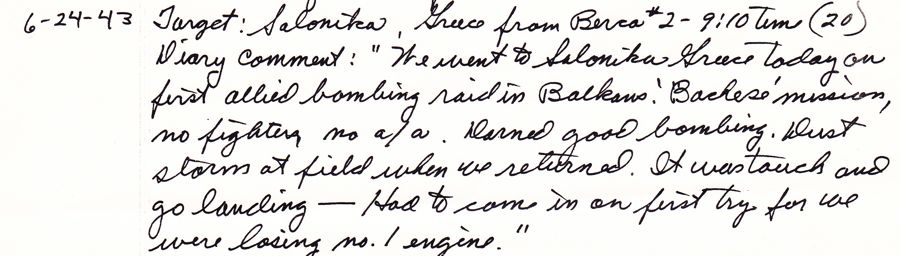 6-24-43 Target: Salonika, Greece from Berca #2 - 9:10 Time (20)
Diary comment: "We went to Salonika Greece today on
first allied bombing raid in Balkans! Bachese' mission,
no fighters no a/a. Darned good bombing. Dust
storm at field when we returned. It was touch and
go landing — Had to come in on first try for we
were losing no. 1 engine."